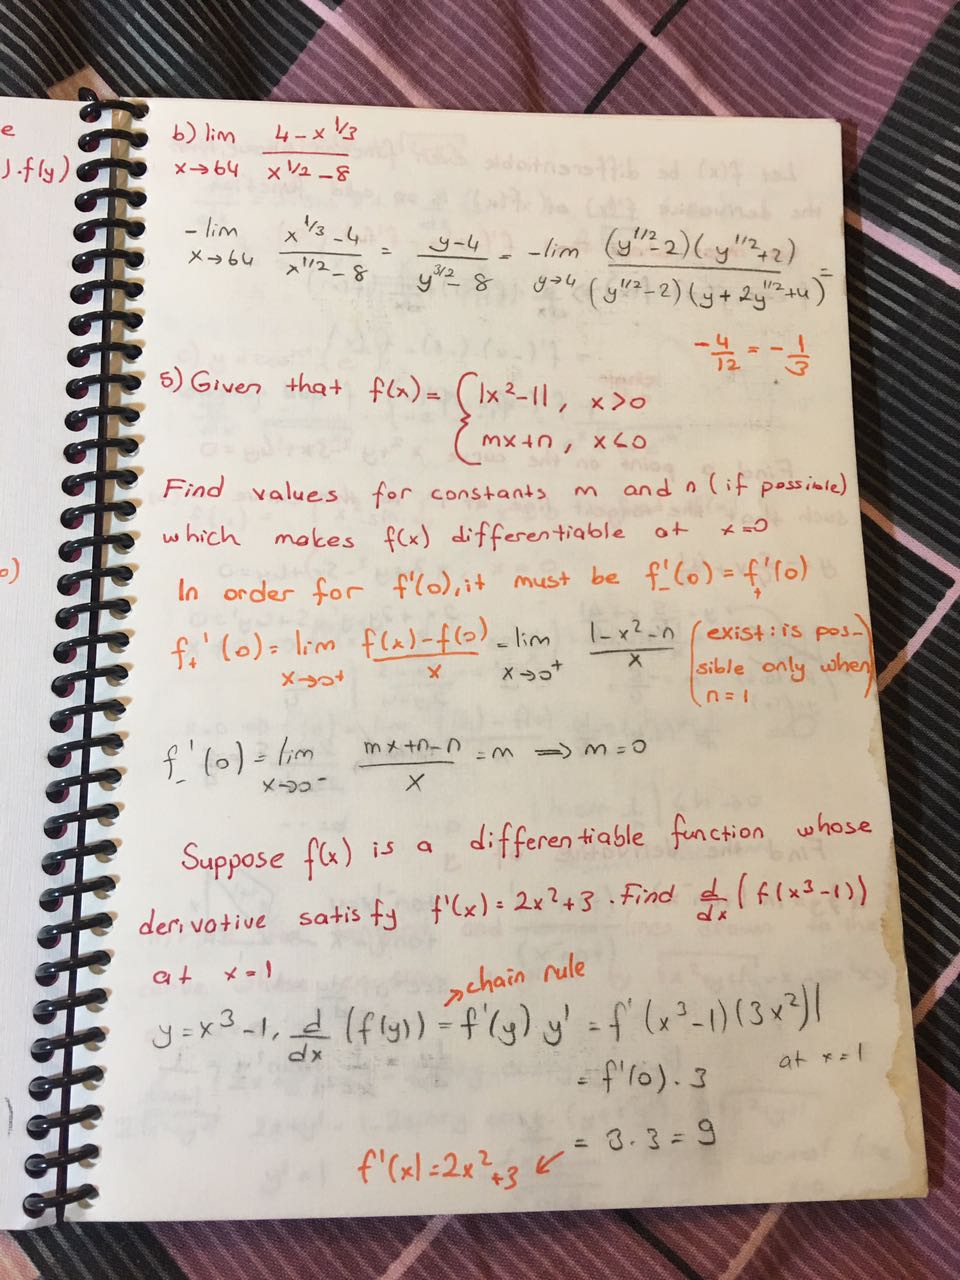 e
).f(y)
o)
b) lim 4-x^1/3 / x^1/2-8
x→64
-lim x^1/3-4 / x^1/2-8 = y-4 / y^3/2-8 = -lim (y^1/2-2)(y^1/2+2) / (y^1/2-2)(y+2y^1/2+4) =
x→64 y→4
-4/12 = -1/3
5) Given that f(x) = { |x²-1|, x>0
mx+n, x<0
Find values for constants m and n (if possible)
which makes f(x) differentiable at x=0
In order for f'(0), it must be f'₋(0) = f'₊(0)
f₊'(0) = lim f(x)-f(0) / x = lim 1-x²-n / x (exist: is pos-
x→0⁺ x→0⁺ sible only when
n=1
f₋'(0) = lim mx+n-n / x = m ⟹ m=0
x→0⁻
Suppose f(x) is a differentiable function whose
derivative satisfy f'(x) = 2x²+3. Find d/dx (f(x³-1))
at x=1
→chain rule
y=x³-1, d/dx (f(y)) = f'(y) y' = f'(x³-1)(3x²)|
at x=1
= f'(0).3
= 3.3 = 9
f'(x)=2x²+3 ↙